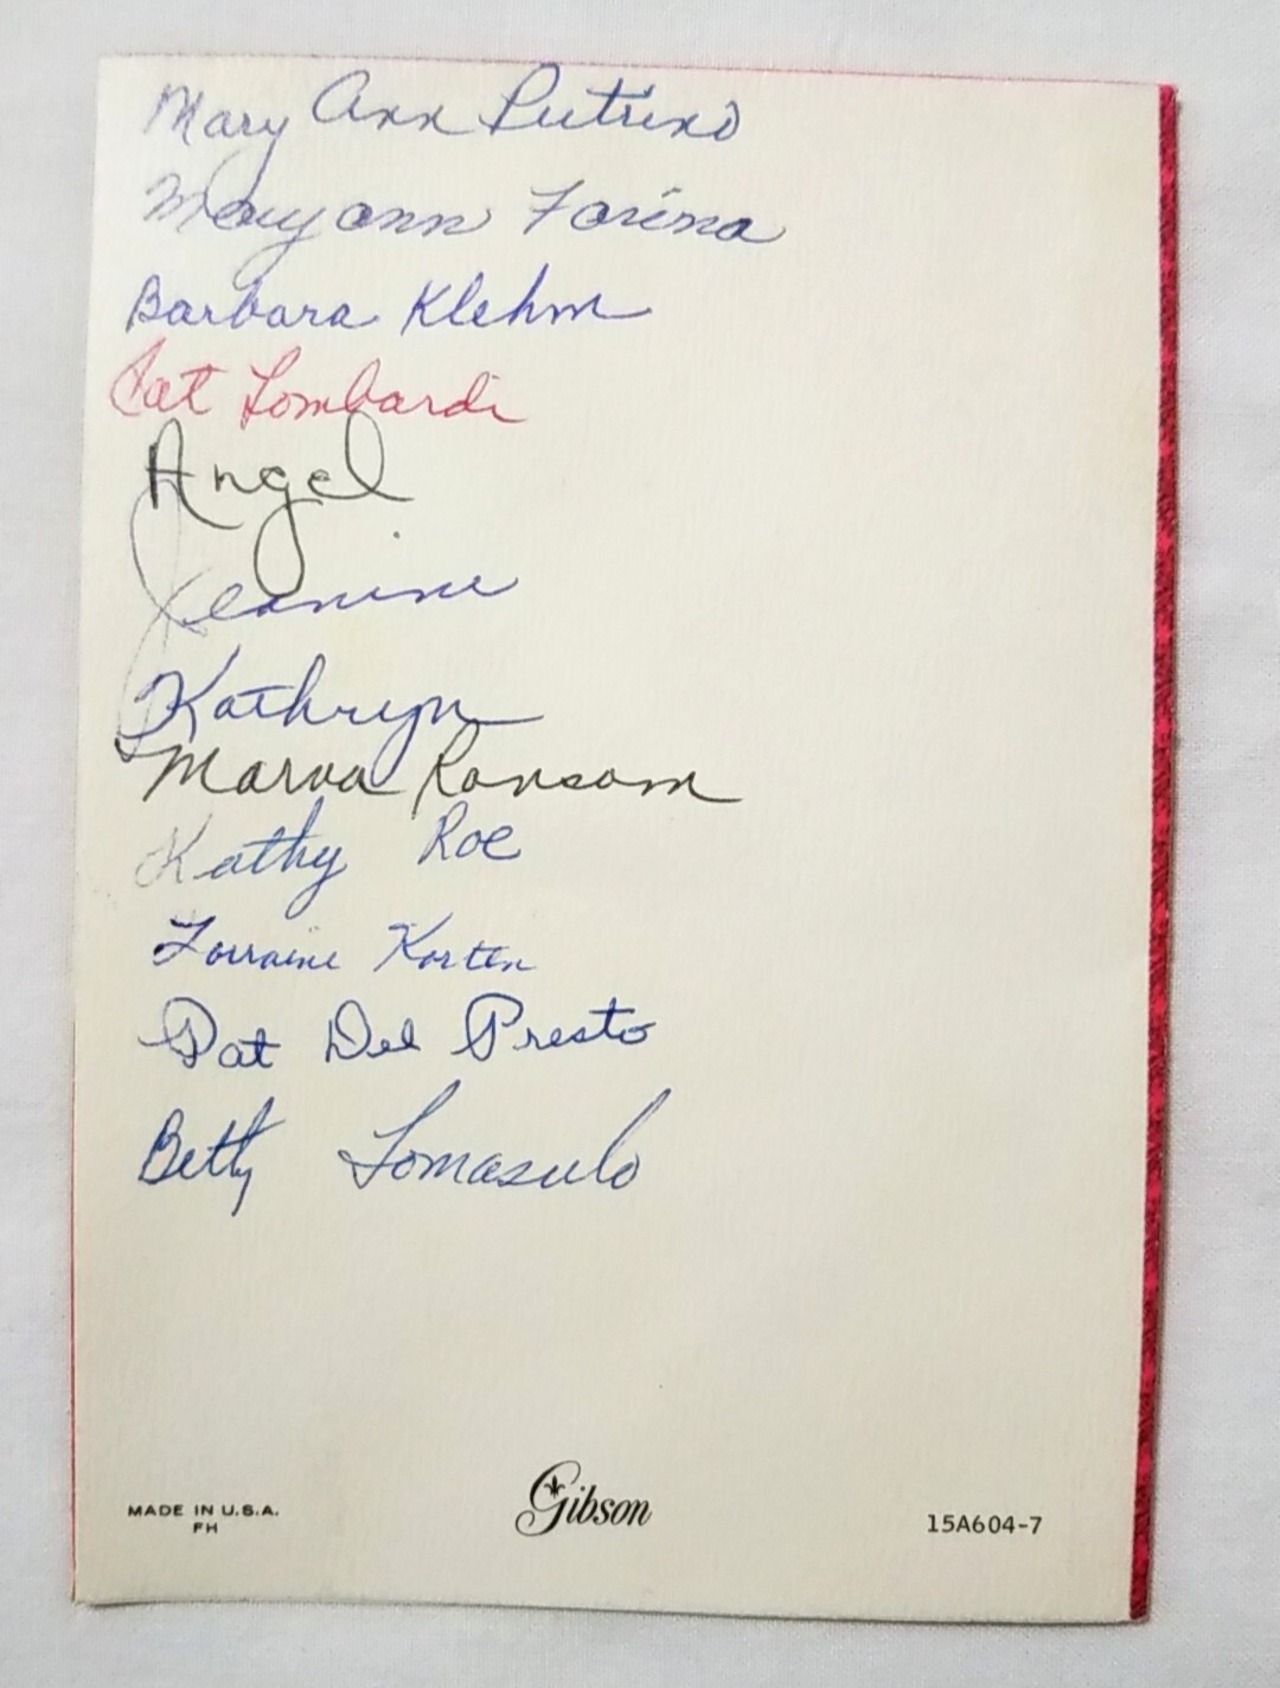 Mary Ann Putrino
Maryann Farina
Barbara Klehm
Pat Lombardi
Angel
Jeanine
Kathryn
Marva Ransom
Kathy Roe
Lorraine Korten
Pat Del Presto
Betty Lomasulo
MADE IN U.S.A.
FH
Gibson
15A604-7